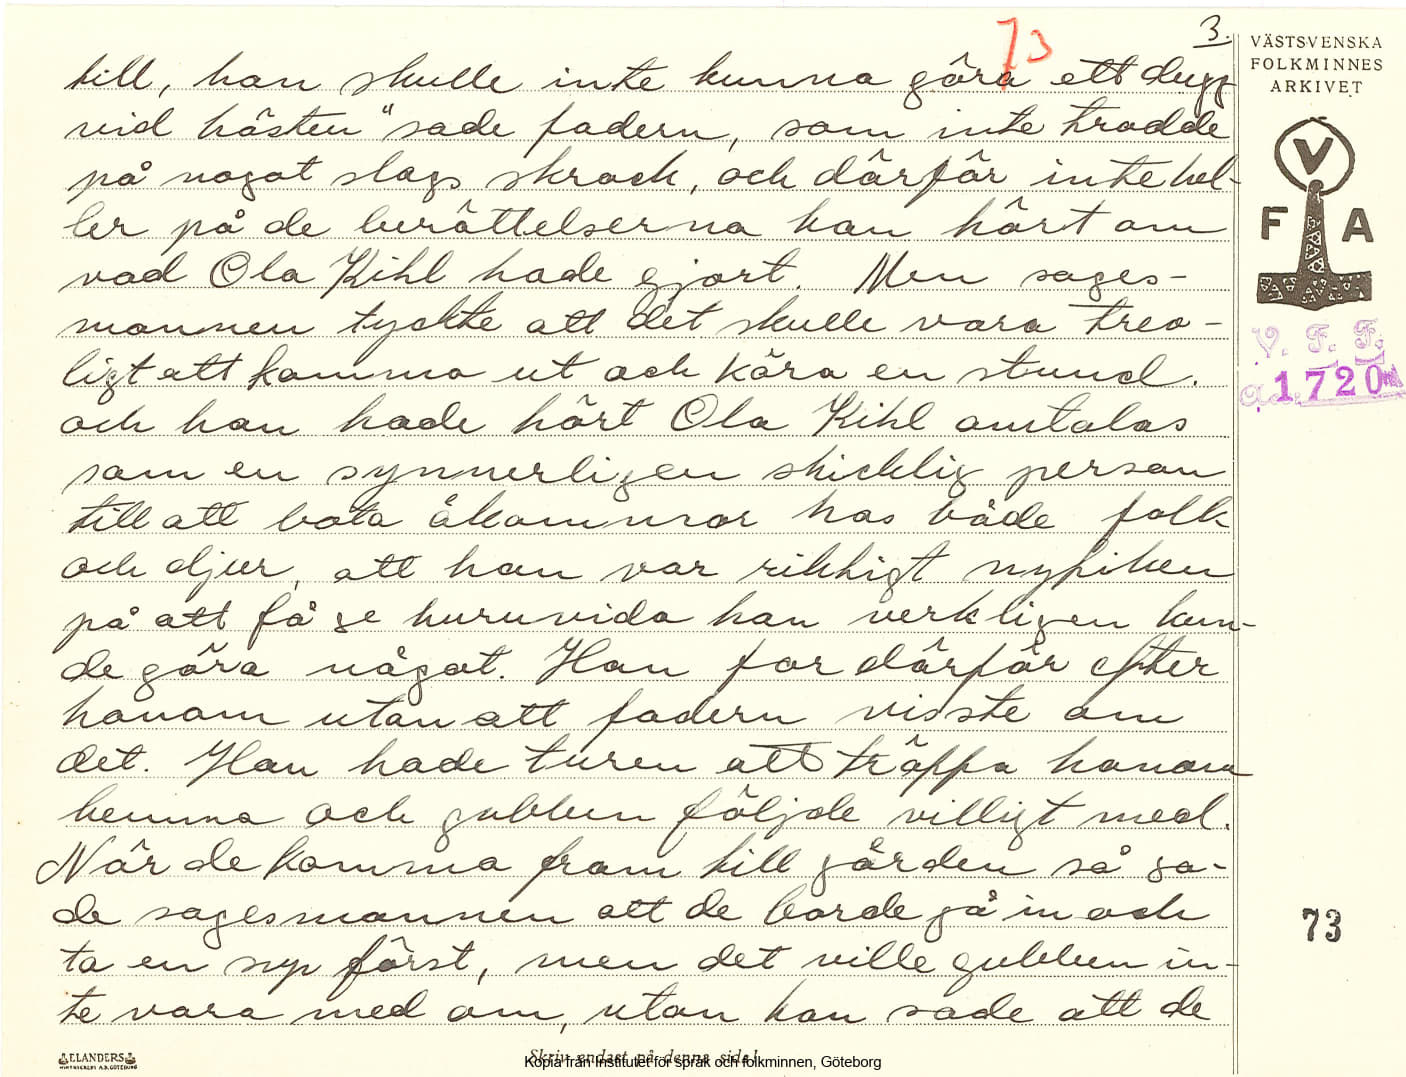 73
3.
VÄSTSVENSKA
FOLKMINNES
ARKIVET
V
F A
V. F. F.
1720
till, han skulle inte kunna göra ett dugg
vid hästen" sade fadern, som inte trodde
på nogot slags skrock, och därför inte hel-
ler på de berättelserna han hört om
vad Ola Kihl hade gjort. Men sages-
mannen tyckte att det skulle vara trev-
ligt att komma ut och köra en stund.
och han hade hört Ola Kihl omtalas
som en synnerligen skicklig person
till att bota åkommor hos både folk
och djur, att han var riktigt nyfiken
på att få se huruvida han verkligen kun-
de göra något. Han for därför efter
honom utan att fadern visste om
det. Han hade turen att träffa honom
hemma och gubben följde villigt med.
När de komma fram till gården så sa-
de sagesmannen att de borde gå in och
ta en sup först, men det ville gubben in-
te vara med om, utan han sade att de
73
ELANDERS
Skriv endast på denna sida!
Kopia från Institutet för språk och folkminnen, Göteborg